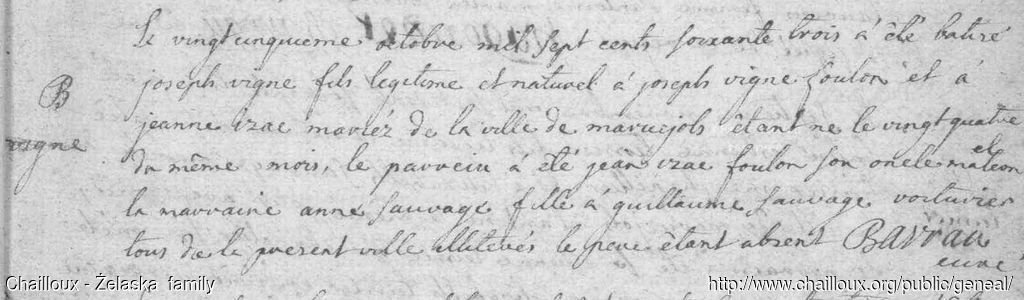 Le vingtcinquieme octobre mil sept cents soixante trois à été batisé
B
joseph vigne fils legitime et naturel à joseph vigne foulon et à
vigne
jeanne izac mariéz de la ville de maruejols êtant ne le vingtquatre
du même mois, le parrein à été jean izac foulon son oncle maternel
la marraine anne sauvage fille à guillaume sauvage voiturier
tous de la present ville illiterés le pere étant absent Barrau
curé
Chailloux - Żelaska family
http://www.chailloux.org/public/geneal/